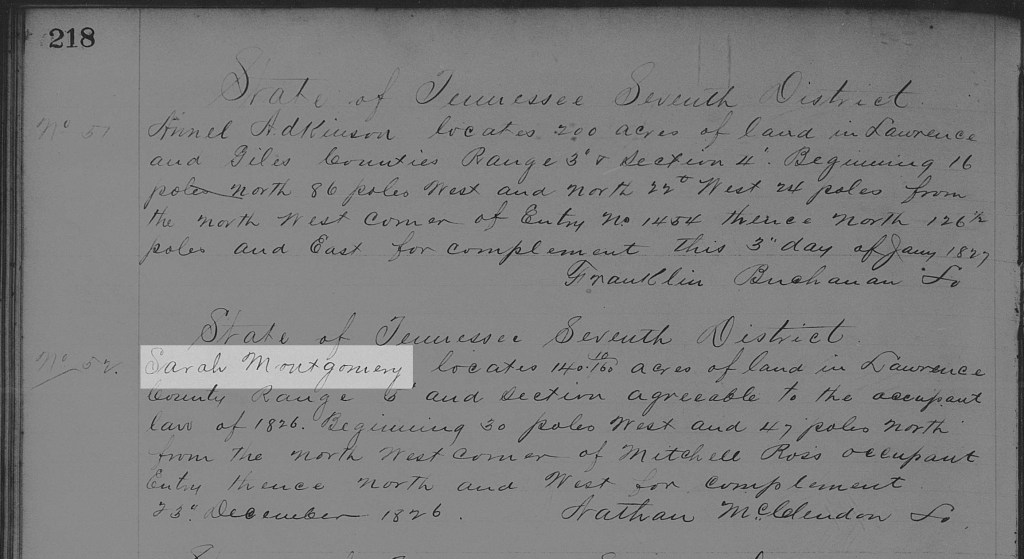 218
State of Tennessee Seventh District
No 51 Annel Adkinson locates 200 acres of land in Lawrence
and Giles Counties Range 3d & Section 4". Beginning 16
poles north 86 poles West and north 22° West 24 poles from
the north West corner of Entry No 1454 thence north 126½
poles and East for complement this 3" day of Jany 1827
Franklin Buchanan Lo
State of Tennessee Seventh District
No 52. Sarah Montgomery locates 140 acres of land in Lawrence
County Range 6 and section agreeable to the occupant
law of 1826. Beginning 30 poles West and 47 poles north
from the north West corner of Mitchell Ross occupant
Entry thence north and West for complement
23d. December 1826. Nathan McClendon Lo